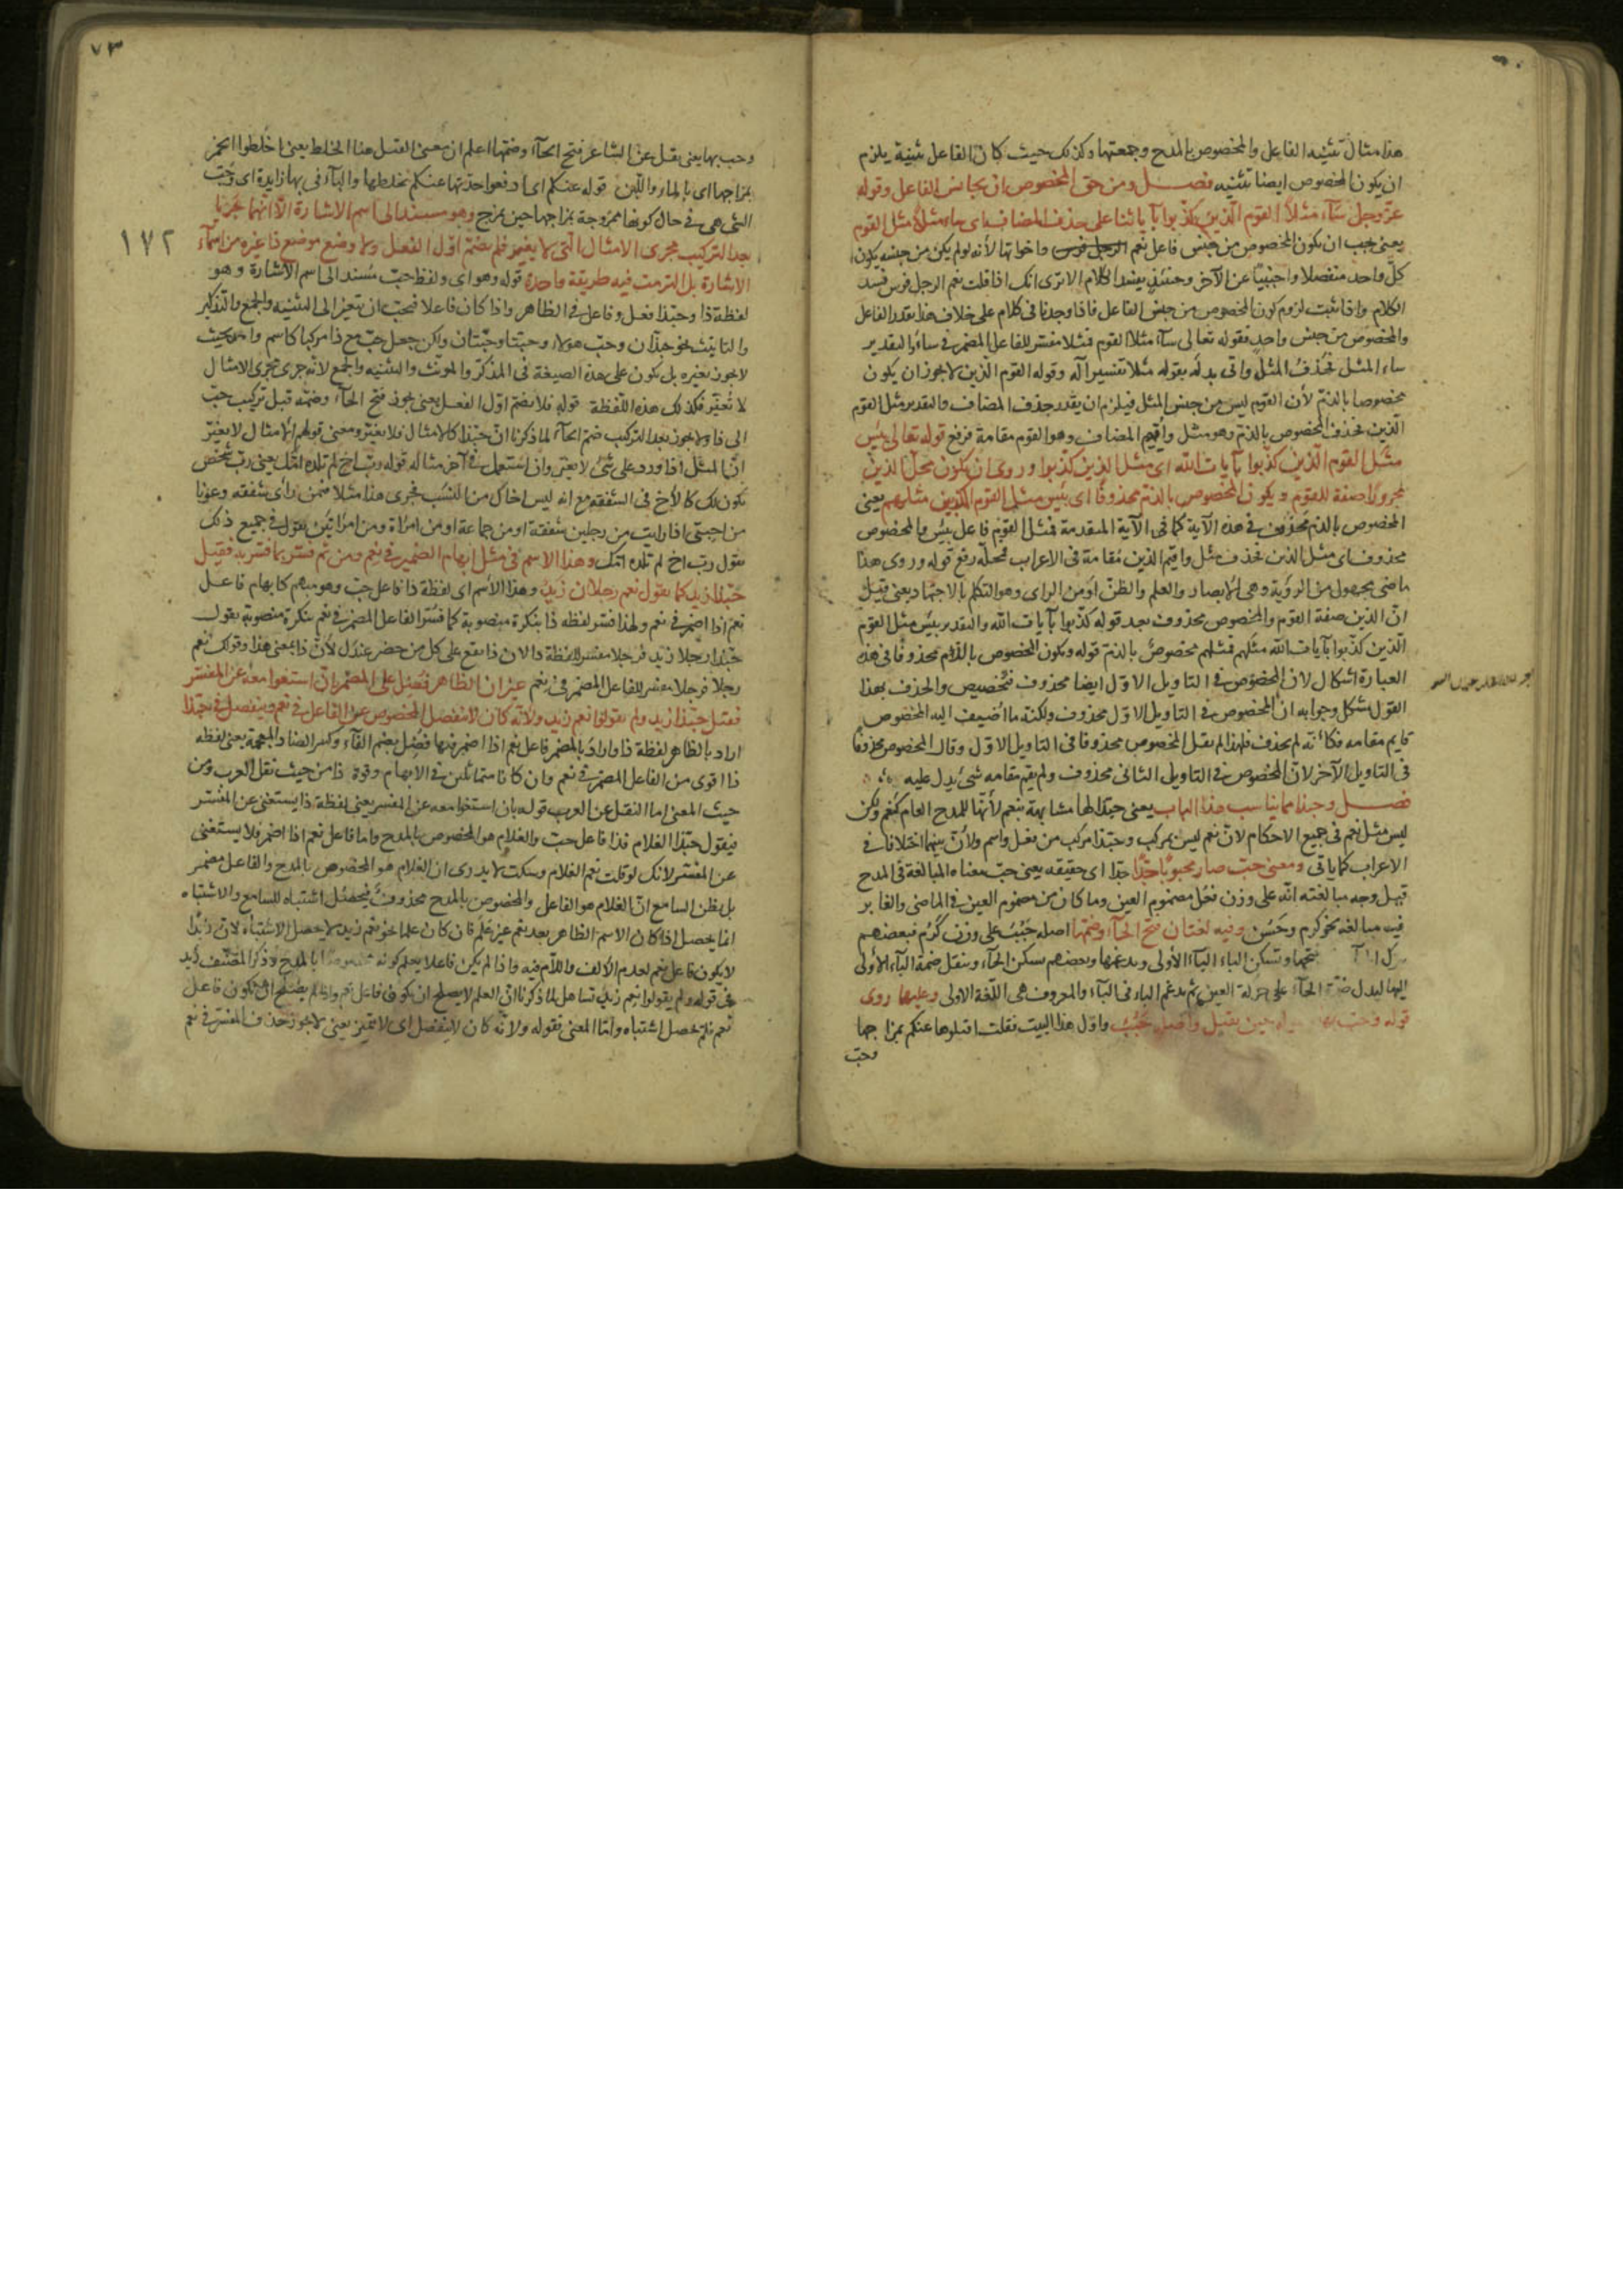 هذا مثال تثنية الفاعل والمخصوص بالمدح وجمعتهما وكذلك حيث كان الفاعل تثنية يلزم
ان يكون المخصوص ايضا تثنية فصل ومن حق المخصوص ان يجانس الفاعل وقوله
عز وجل ساء مثلا القوم الذين كذبوا بآياتنا على حذف المضاف اى ساء مثلا مثل القوم
يعنى يجب ان يكون المخصوص من جنس فاعل نعم واخواتها لأنه لو لم يكن من جنسه يكون
كل واحد منفصلا واجنبيا عن الآخر وحينئذ يفسد الكلام الا ترى انك اذا قلت نعم الرجل فرس فسد
الكلام واذا ثبت لزوم كون المخصوص من جنس الفاعل فاذا وجدنا فى كلام على خلاف هذا نقدر الفاعل
والمخصوص من جنس واحد فقوله تعالى ساء مثلا القوم فمثلا مفسر للفاعل المضمر فى ساء والتقدير
ساء المثل فحذف المثل واتى بدله بقوله مثلا تفسيرا له وقوله القوم الذين لا يجوز ان يكون
مخصوصا بالذم لأن القوم ليس من جنس المثل فيلزم ان يقدر حذف المضاف والتقدير مثل القوم
الذين فحذف المخصوص بالذم وهو مثل واقيم المضاف وهو القوم مقامه فرفع قوله تعالى بئس
مثل القوم الذين كذبوا بآيات الله اى مثل الذين كذبوا وروى ان يكون محل الذين
مجرورا صفة للقوم ويكون المخصوص بالذم محذوفا اى بئس مثل القوم المكذبين مثلهم يعنى
المخصوص بالذم محذوف فى هذه الآية كما فى الآية المتقدمة فمثل القوم فاعل بئس والمخصوص
محذوف اى مثل الذين فحذف مثل واقيم الذين مقامه فى الاعراب فمحله رفع قوله وروى هذا
ماضى مجهول من الرؤية وهى الابصار والعلم والظن او من الراى وهو التكلم بالاجتهاد يعنى قيل
ان الذين صفة القوم والمخصوص محذوف بعد قوله كذبوا بآيات الله والتقدير بئس مثل القوم
الذين كذبوا بآيات الله مثلهم فمثلهم مخصوص بالذم قوله ويكون المخصوص بالذم محذوفا فى هذه
العبارة اشكال لان المخصوص فى التاويل الاول ايضا محذوف فتخصيص والحذف بهذا
القول مشكل وجوابه ان المخصوص فى التاويل الاول محذوف ولكنه ما اضيف اليه المخصوص
قايم مقامه فكأنه لم يحذف فلهذا لم يقل المخصوص محذوفا فى التاويل الاول وقال المخصوص محذوفا
فى التاويل الآخر لان المخصوص فى التاويل الثانى محذوف ولم يقم مقامه شئ يدل عليه
فصل وحبذا مما يناسب هذا الباب يعنى حبذا لها مشابهة بنعم لأنها للمدح العام كنعم ولكن
ليس مثل نعم فى جميع الاحكام لان نعم ليس بمركب وحبذا مركب من فعل واسم ولأن بينهما اختلافا فى
الاعراب كما ياتى ومعنى حب صار محبوبا جدا جدا اى حقيقة يعنى حب معناه المبالغة فى المدح
قيل وجه مبالغته انه على وزن فعل مضموم العين وما كان من مضموم العين فى الماضى والغابر
فيه مبالغة نحو كرم وحسن وفيه لغتان فتح الحاء وضمها اصله حبب على وزن كرم فبعضهم
فتحها وتسكن الباء الأولى ويدغمها وبعضهم يسكن الحاء وينقل ضمة الباء الأولى
اليها ليدل ضمة الحاء على حركة العين ثم يدغم الباء فى الباء والمعروف هى اللغة الاولى وعليها روى
قوله وحب بها حين يقتل واصله حبب واول هذا البيت فقلت اقتلوها عنكم بمزاجها
وحب
٧٣
وحب بها يعنى نقل عن الشاعر فتح الحاء وضمها اعلم ان معنى القتل هنا الخلط يعنى اخلطوا الخمر
بمزاجها اى بالماء واللبن قوله عنكم اى ادفعوا حدتها عنكم بخلطها والباء فى بها زايدة اى وحبت
التى هى فى حال كونها ممزوجة بمزاجها حين يمزج وهو مسند الى اسم الاشارة الا انهما جريا
بعد التركيب مجرى الامثال التى لا يتغير فلم يضم اول الفعل ولا وضع موضع ذا غيره من اسماء
١٧٢
الاشارة بل التزمت فيه طريقة واحدة قوله وهو اى ولفظ حب مسند الى اسم الاشارة وهو
لفظة ذا وحبذا فعل وفاعل فى الظاهر واذا كان فاعلا فيجب ان يتغير الى التثنية والجمع والتذكير
والتانيث نحو حبذان وحب هولاء وحبتا وحبتان ولكن جعل حب مع ذا مركبا كاسم واحد بحيث
لا يجوز تغيره بل يكون على هذه الصيغة فى المذكر والمونث والتثنية والجمع لأنه جرى مجرى الامثال
لا تغير فكذلك هذه اللفظة قوله فلا يضم اول الفعل يعنى يجوز فتح الحاء وضمه قبل تركيب حب
الى ذا ولا يجوز بعد التركيب ضم الحاء لما ذكرنا ان حبذا كالامثال فلا يغير ومعنى قولهم الامثال لا يغير
ان المثل اذا ورد على شئ لا يغير وان استعمل فى آخر مثاله قوله رب اخ لم تلده امك يعنى رب شخص
يكون لك كالأخ فى الشفقة مع انه ليس اخاك من النسب فجرى هذا مثلا فمن رأى شفقة وعونا
من اجنبى اذا رايت من رجلين شفقة او من جماعة او من امراة ومن امراتين تقول فى جميع ذلك
تقول رب اخ لم تلده امك وهذا الاسم فى مثل ابهام الضمير فى نعم ومن ثم فسر بما فسر به فقيل
حبذا زيد كما تقول نعم رجلا زيد وهذا الأسم اى لفظة ذا فاعل حب وهو مبهم كابهام فاعل
نعم اذا اضمر فى نعم ولهذا فسر لفظه ذا بنكرة منصوبة كما فسر الفاعل المضمر فى نعم بنكرة منصوبة تقول
حبذا رجلا زيد فرجلا مفسر للفظة ذا لان ذا يقع على كل من حضر عندك لأن ذا بمعنى هذا وقولك نعم
رجلا فرجلا مفسر للفاعل المضمر فى نعم غير ان الظاهر فضل على المضمر بان استغنوا معه عن المفسر
فقيل حبذا زيد ولم يقولوا نعم زيد ولانه كان لا ينفصل المخصوص عن الفاعل فى نعم وينفصل فى حبذا
اراد بالظاهر لفظة ذا واراد بالمضمر فاعل نعم اذا اضمر فيها فضل بضم الفاء وكسر الضاد المعجمة يعنى لفظه
ذا اقوى من الفاعل المضمر فى نعم وان كانا متماثلين فى الابهام وقوة ذا من حيث نقل العرب ومن
حيث المعنى اما النقل عن العرب قوله بان استغنوا معه عن المفسر يعنى لفظة ذا يستغنى عن المفسر
فيقول حبذا الغلام فذا فاعل حب والغلام هو المخصوص بالمدح واما فاعل نعم اذا اضمر فلا يستغنى
عن المفسر لانك لو قلت نعم الغلام وسكت لا يدرى ان الغلام هو المخصوص بالمدح والفاعل مضمر
بل يظن السامع ان الغلام هو الفاعل والمخصوص بالمدح محذوف فيحصل اشتباه للسامع والاشتباه
انما يحصل اذا كان الاسم الظاهر بعد نعم غير علم فان كان علما نحو نعم زيد لا يحصل الاشتباه لان زيدا
لا يكون فاعل نعم لعدم الالف واللام فيه واذا لم يكن فاعلا يعلم كونه مخصوصا بالمدح وذكر المصنف زيد
فى قوله ولم يقولوا نعم زيد تساهل لما ذكرنا ان العلم لا يصلح ان يكون فاعل نعم واذا لم يصلح ان يكون فاعل
نعم فلم يحصل اشتباه واما المعنى فقوله ولأنه كان لا ينفصل اى لا تميز يعنى لا يجوز حذف المفسر فى نعم